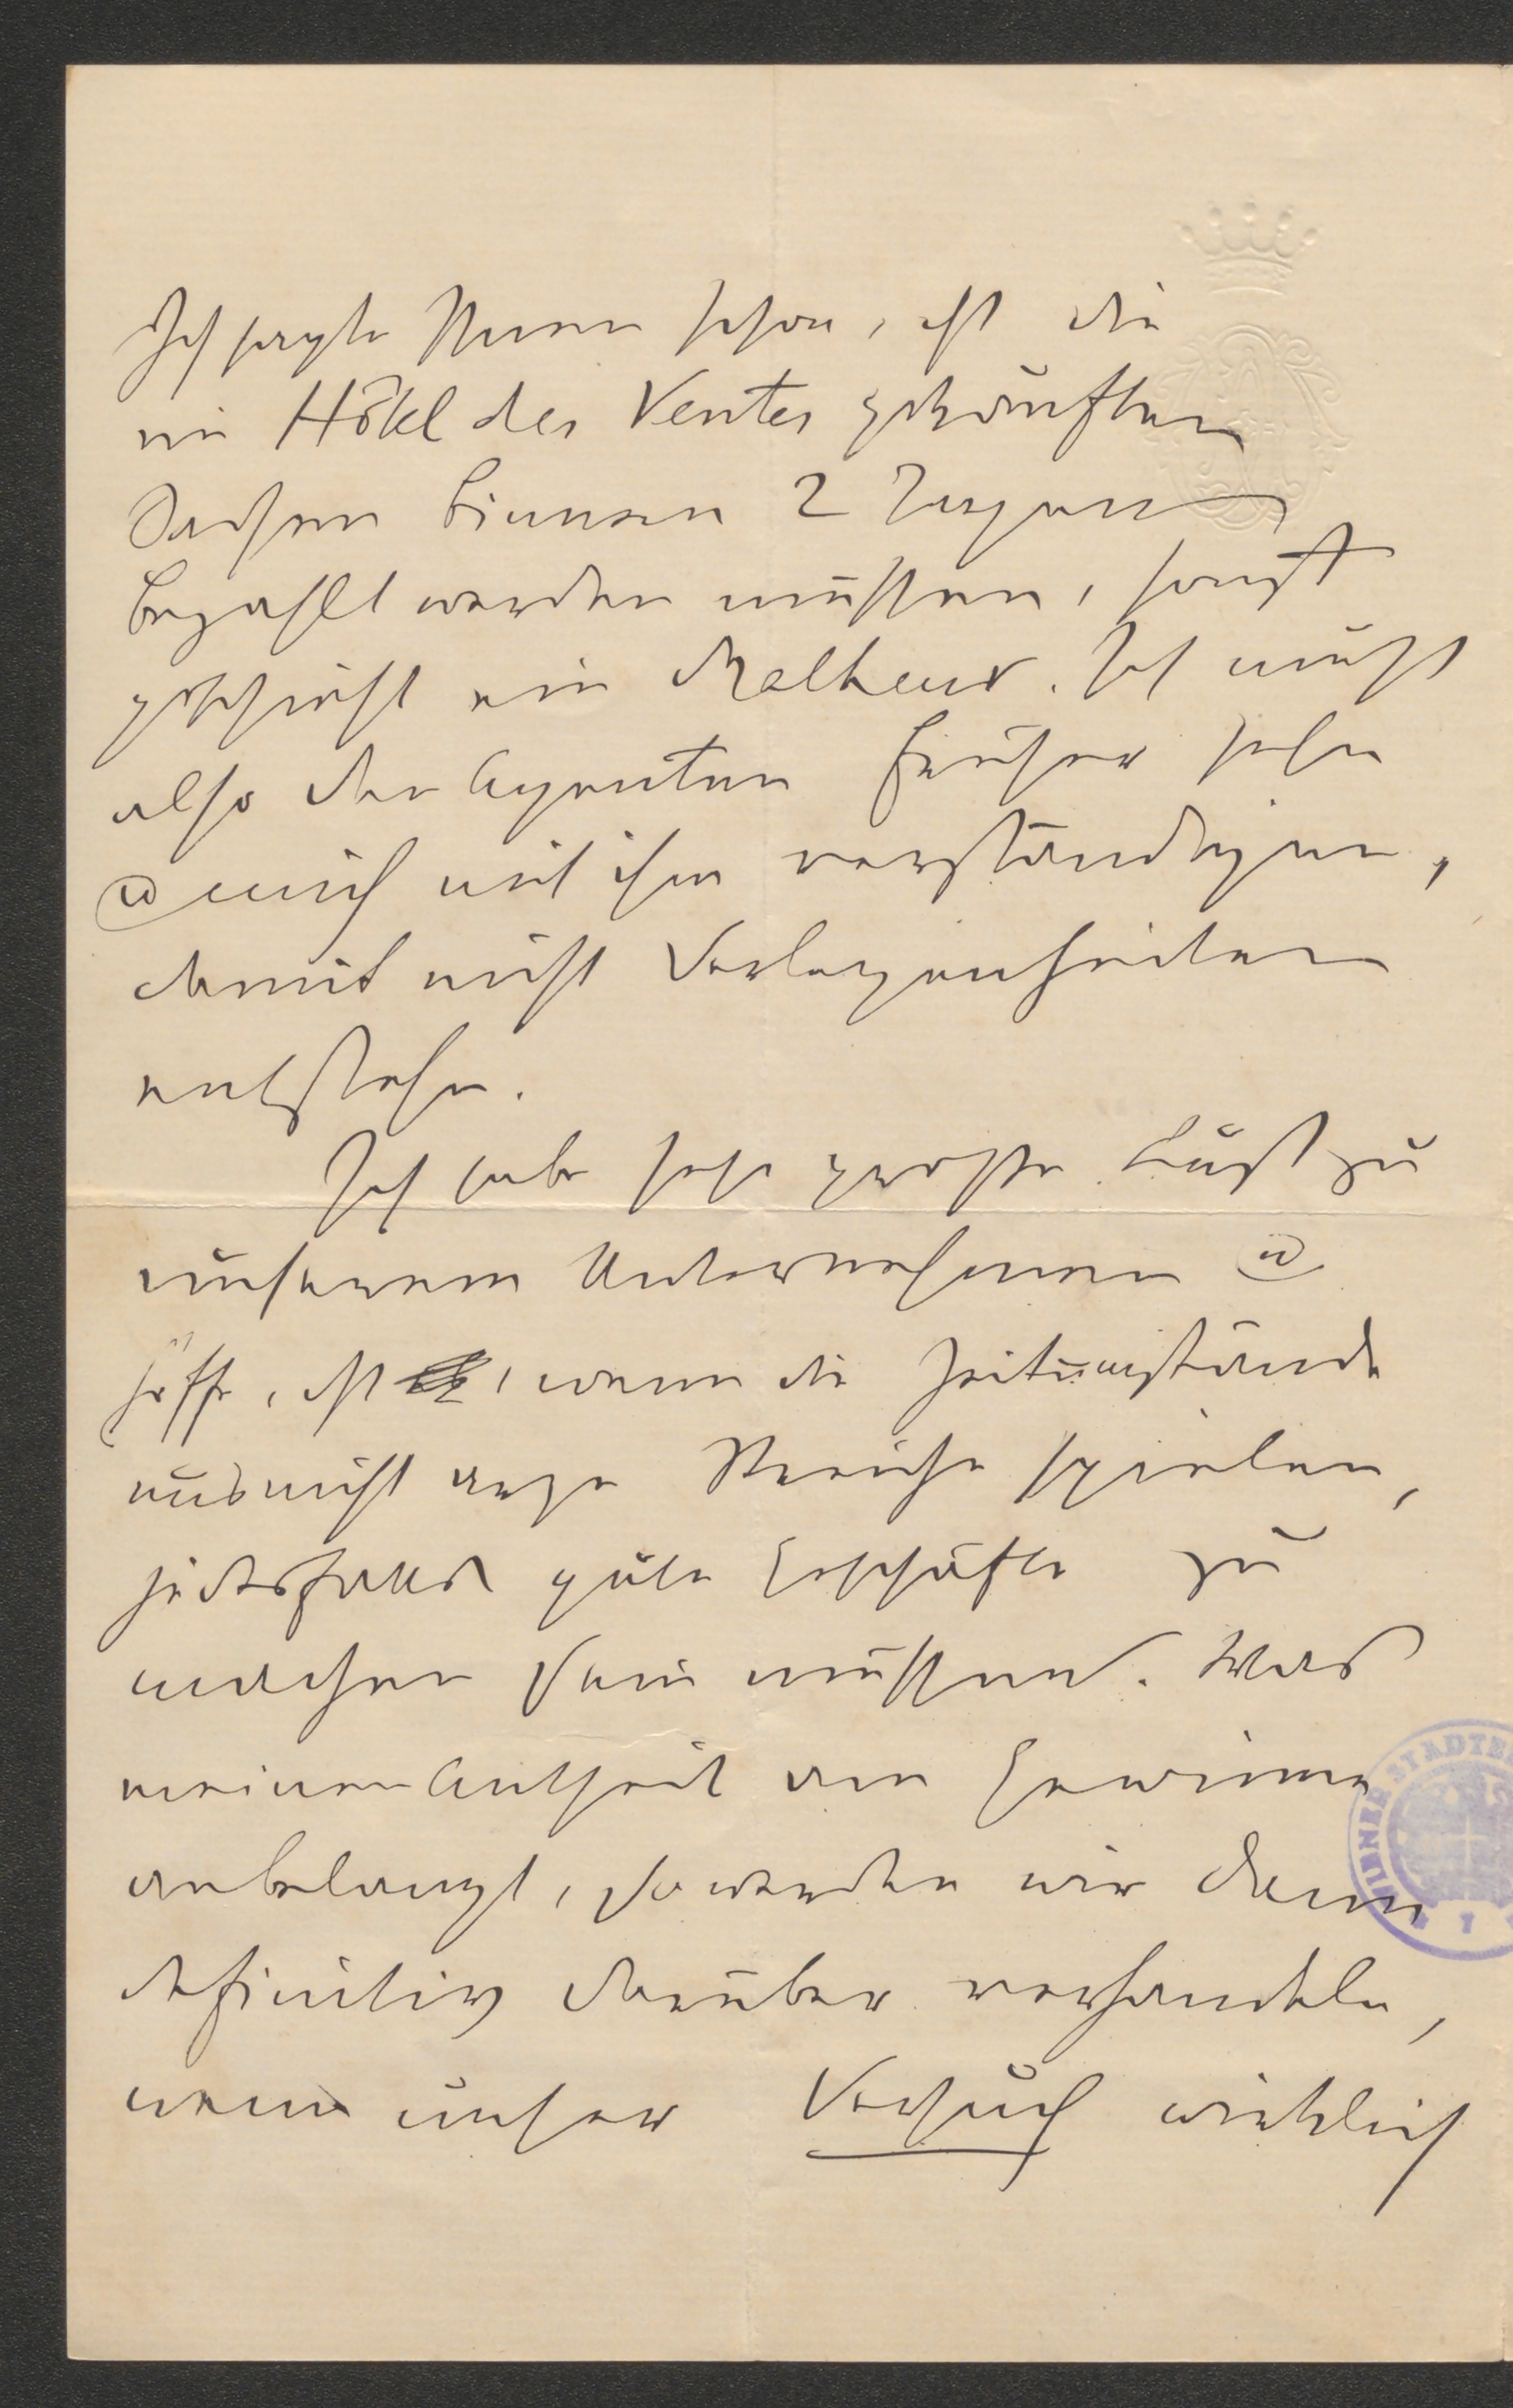 Ich sagte Ihnen schon, dß die
im Hôtel des Ventes gekauften
Sachen binnen 2 Tagen
bezahlt werden müssen, sonst
geschieht ein Malheur. Ich muß
also den Agenten früher sehn
u mich mit ihm verständigen,
damit nicht Verlegenheiten
entstehn.
Ich habe sehr große Lust zu
unserem Unternehmen u
hoffe, dß, wenn die Zeitumstände
uns nicht arge Streiche spielen,
jedesfalls gute Geschäfte zu
machen sein müssen. Was
meinen Antheil am Gewinne
anbelangt, so werden wir dann
definitiv darüber verhandeln,
wenn unser Versuch wirklich
WIENER STÄDTE